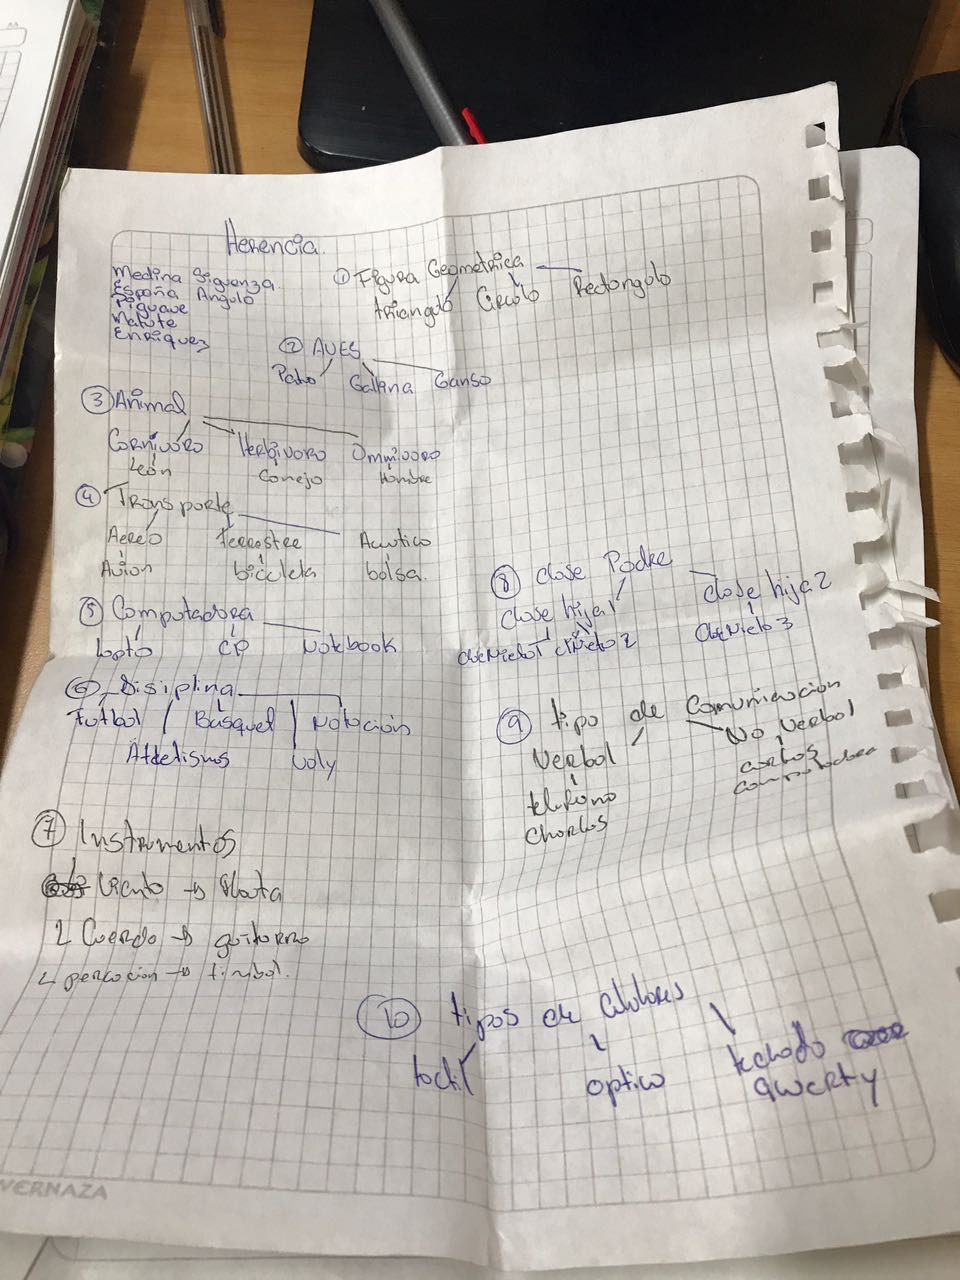 Herencia.
Medina Siguenza
España Angulo
Piguave
Matute
Enriquez
① Figura Geometrica
triangulo Circulo Rectangulo
② AVES
Pato Gallina Ganso
③ Animal
Carnivoro Herbivoro Omnivoro
León Conejo Hombre
④ Transporte
Aereo terrestre Acutico
Avion bicicleta bolsa.
⑤ Computadora
CP Notebook
⑥ Disiplina
Futbol Basquet Natacion
Atletismos Voly
⑦ Instrumentos
Viento → flauta
2 Cuerda → guitarra
percocion → timbal.
⑧ clase Padre
clase hija1 clase hija2
claseNieto1 cNieto2 claseNieto3
⑨ tipo de Comunicacion
Verbal No Verbal
telefono cartas
Charlas computadora
⑩ tipos de celulares
tactil optico teclado
qwerty
VERNAZA